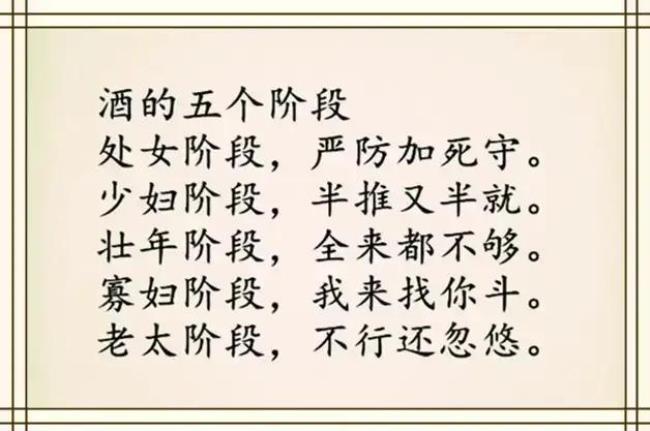 酒的五个阶段
处女阶段，严防加死守。
少妇阶段，半推又半就。
壮年阶段，全来都不够。
寡妇阶段，我来找你斗。
老太阶段，不行还忽悠。